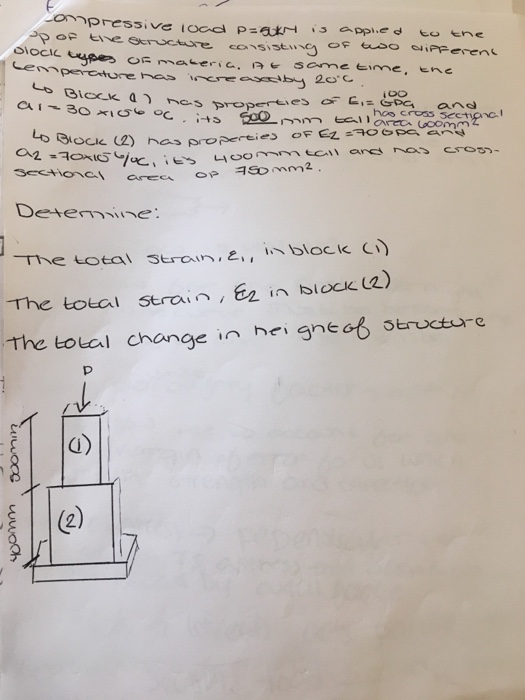 compressive load P= kN is applied to the
op of the structure consisting of two different
block types of materic. At same time, the
temperature has increased by 20°C
↳ Block (1) has properties of E1= 100 GPa and
α1 = 30 x10-6 °C. its 500 mm tall has cross sectional area 600mm2
↳ Block (2) has properties of E2 = 70GPa and
α2 = 70x10-6/°C, it's 400mm tall and has cross-
sectional area of 750mm2.
Determine:
The total strain, ε1, in block (1)
The total strain, ε2 in block (2)
The total change in height of structure
P
(1)
(2)
500mm
400mm